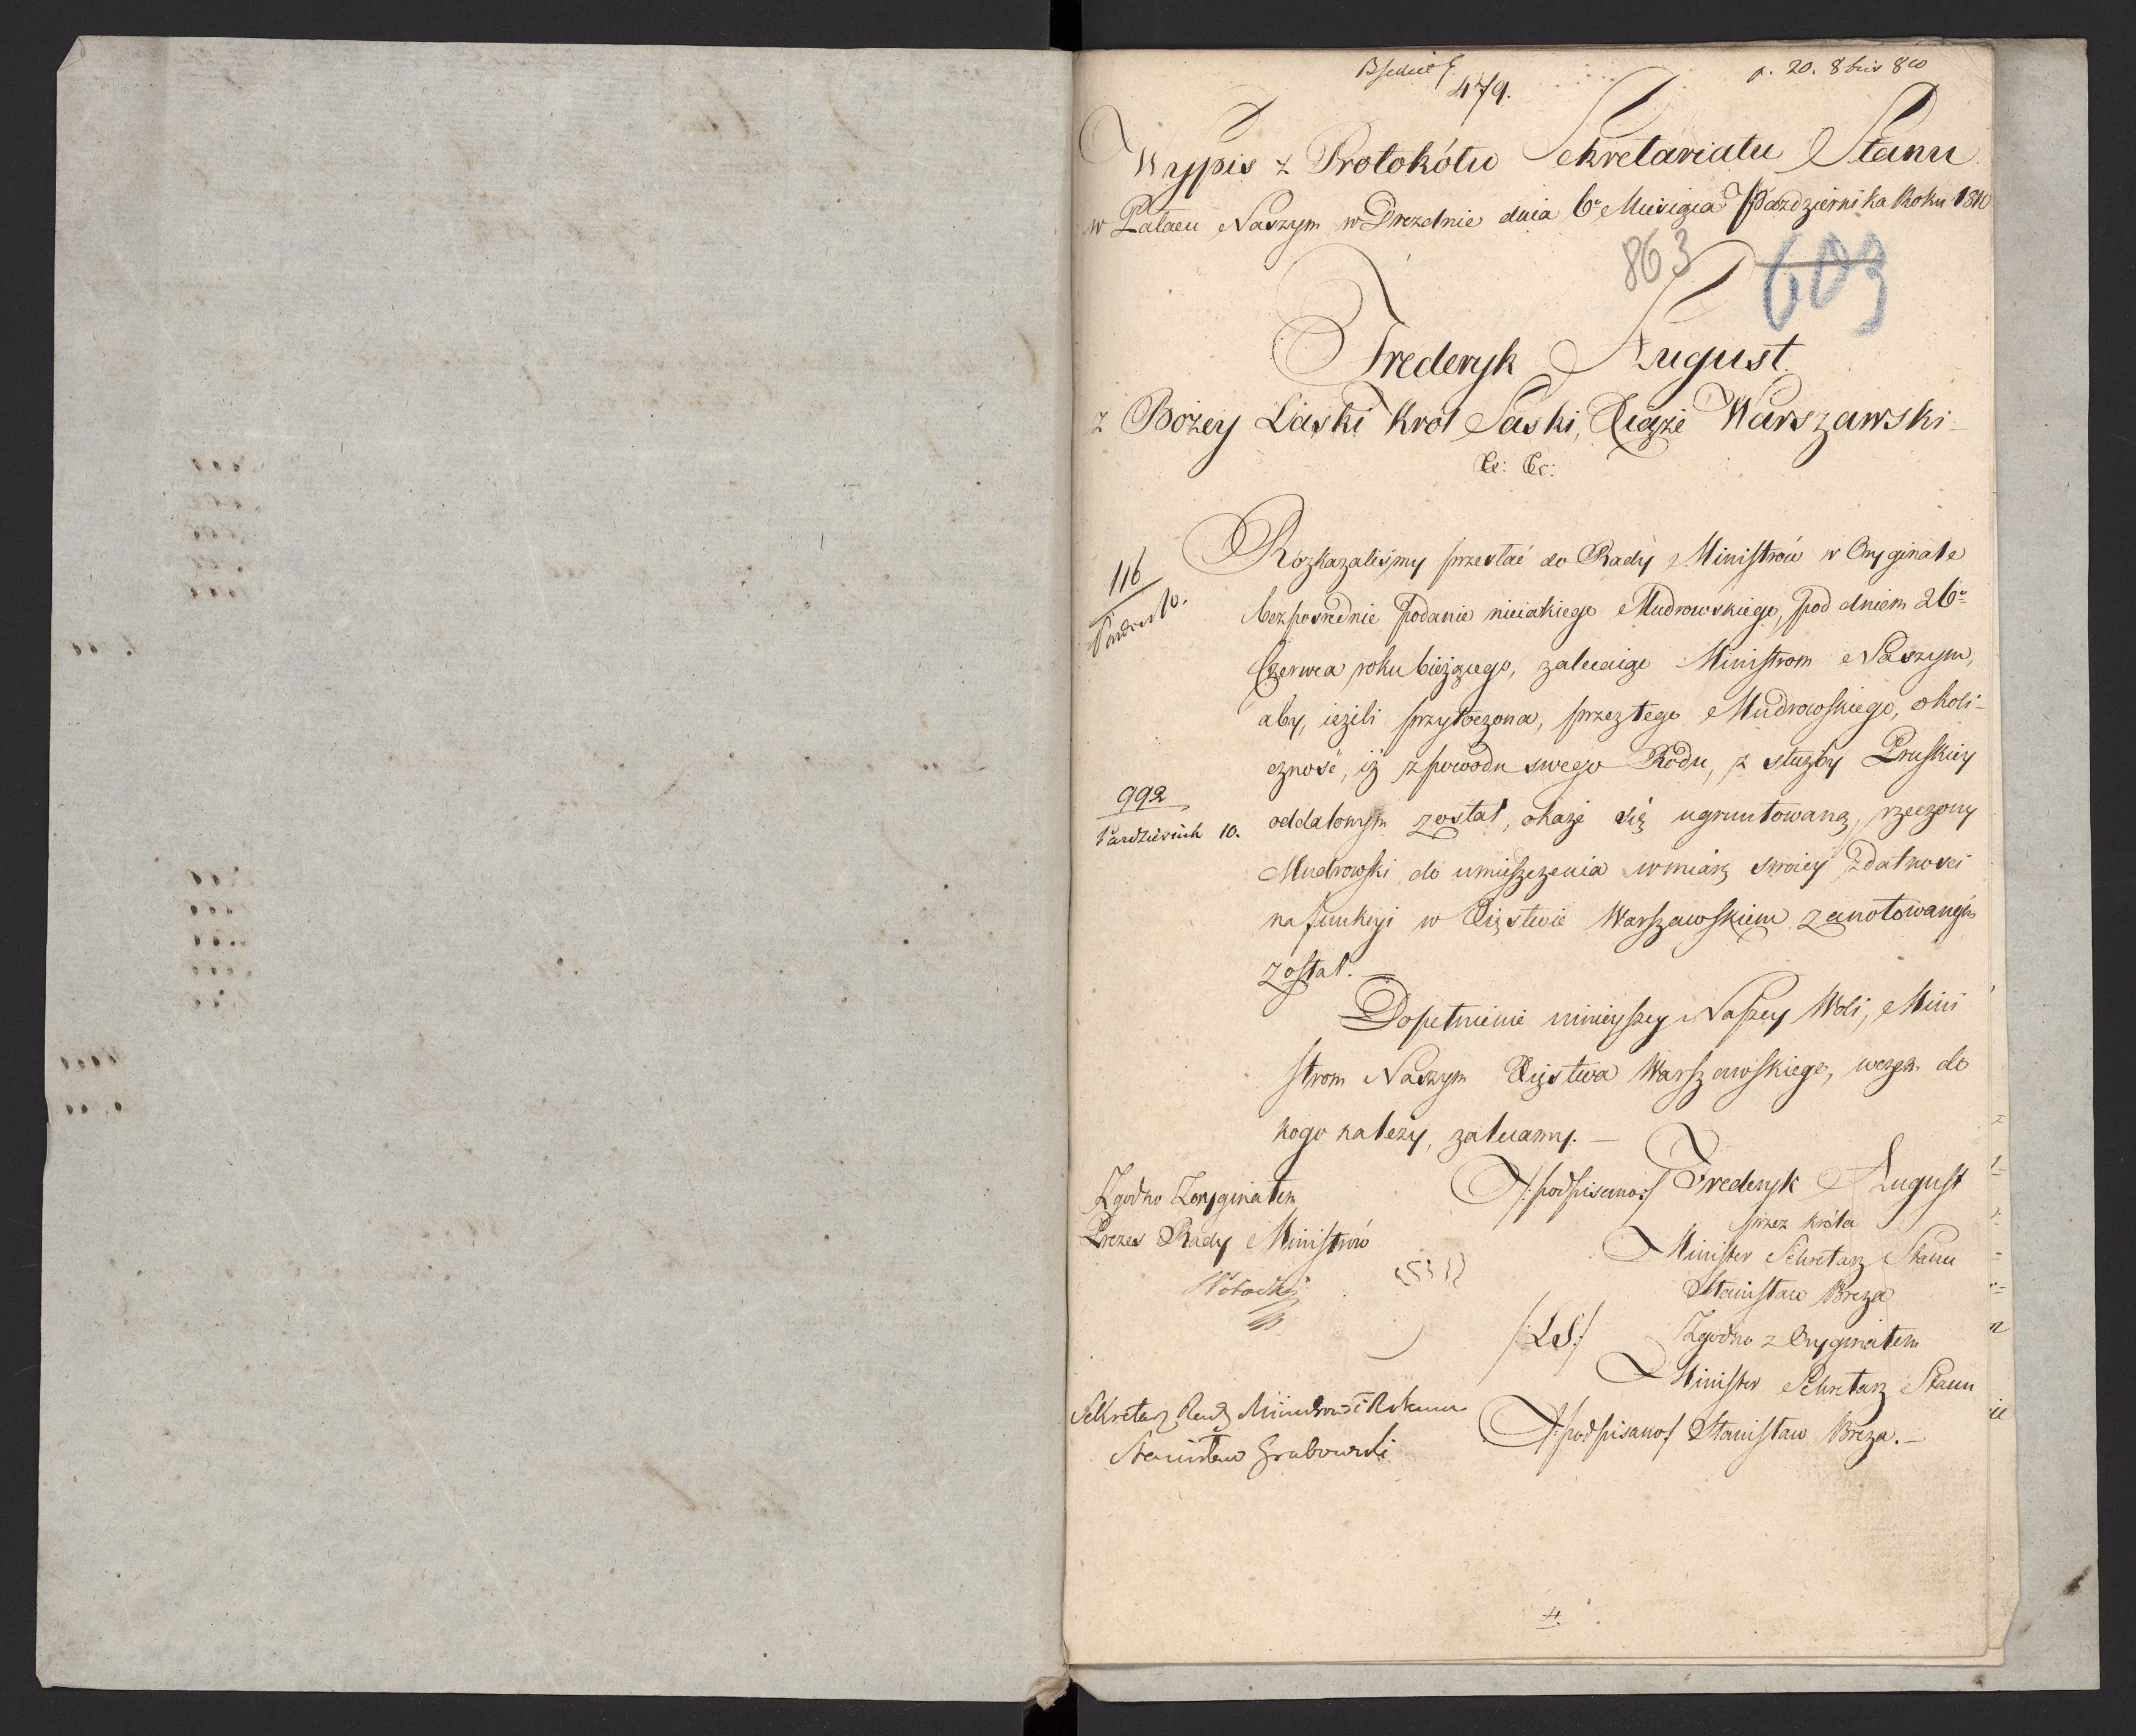 479.
p. 20. 8bris 810
Wypis z Protokółu Sekretariatu Stanu
w Pałacu Naszym w Dreznie dnia 6° Miesiąca Października Roku 1810
863
603
Frederyk August.
z Bożey Łaski Król Saski, Xiąże Warszawski
&c: &c:
Rozkazaliśmy przesłać do Rady Ministrów w Oryginale
bezpośrednie podanie nieiakiego Mudrowskiego, pod dniem 26°
Czerwca roku bieżącego, zalecaiąc Ministrom Naszym,
aby, ieżeli przytoczona, przez tego Mudrowskiego, okoli-
czność, iż z powodu swego Rodu, z służby Pruskiey
oddalonym został, okaże się ugruntowaną, rzeczony
Mudrowski do umieszczenia w miarę swoiey zdatności
na funkcyi w Xięstwie Warszawskiem zanotowanym
został. —
116
992
Październik 10.
Dopełnienie ninieyszey Naszey Woli, Mini
strom Naszym Xięstwa Warszawskiego, w czém do
kogo należy, zalecamy. —
/:podpisano:/ Frederyk August
przez Króla
Minister Sekretarz Stanu
Stanisław Breza
/:LS:/ Zgodno z Oryginałem
Minister Sekretarz Stanu
/:podpisano:/ Stanisław Breza. —
Zgodno z oryginałem
Prezes Rady Ministrów
Potocki
Sekretarz Rady Ministrów
Stanisław Grabowski
4.